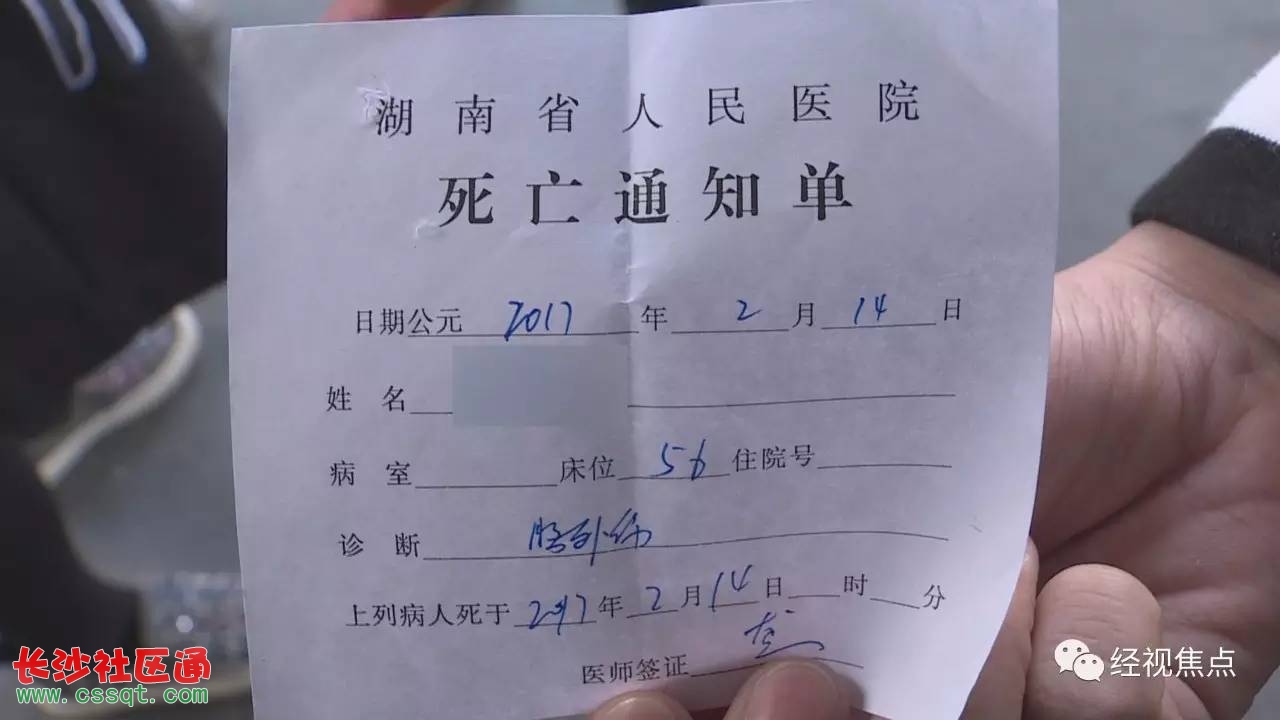 湖南省人民医院
死亡通知单
日期公元 2017 年 2 月 14 日
姓 名
病 室 床位 56 住院号
诊 断 脑外伤
上列病人死于 2017 年 2 月 14 日 时 分
医师签证
长沙社区通
www.cssqt.com
经视焦点